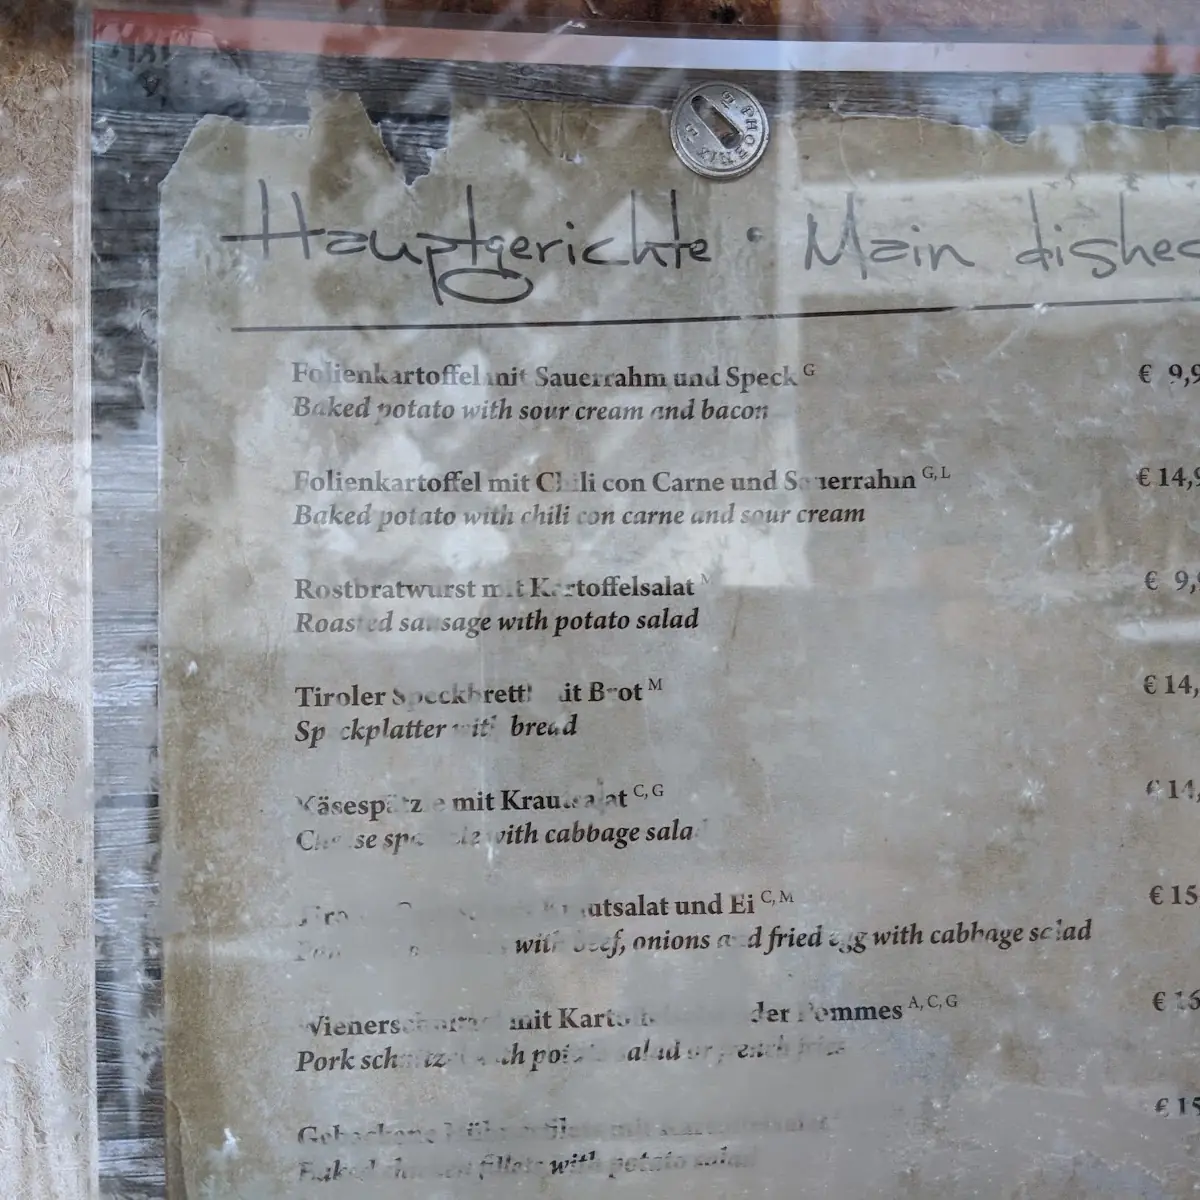 PHOENIX
Hauptgerichte • Main dishes
Folienkartoffel mit Sauerrahm und Speck G € 9,9
Baked potato with sour cream and bacon
Folienkartoffel mit Chili con Carne und Sauerrahm G, L € 14,9
Baked potato with chili con carne and sour cream
Rostbratwurst mit Kartoffelsalat M € 9,9
Roasted sausage with potato salad
Tiroler Speckbrettl mit Brot M € 14,
Speckplatter with bread
Käsespätzle mit Krautsalat C, G € 14,
Cheese spaetzle with cabbage salad
Krautsalat und Ei C, M € 15
with beef, onions and fried egg with cabbage salad
Wienerschnitzel mit Kartoffelsalat oder Pommes A, C, G € 16
Pork schnitzel with potato salad or french fries
Gebackene Hühnerfilets mit Kartoffelsalat € 15
Baked chicken fillets with potato salad